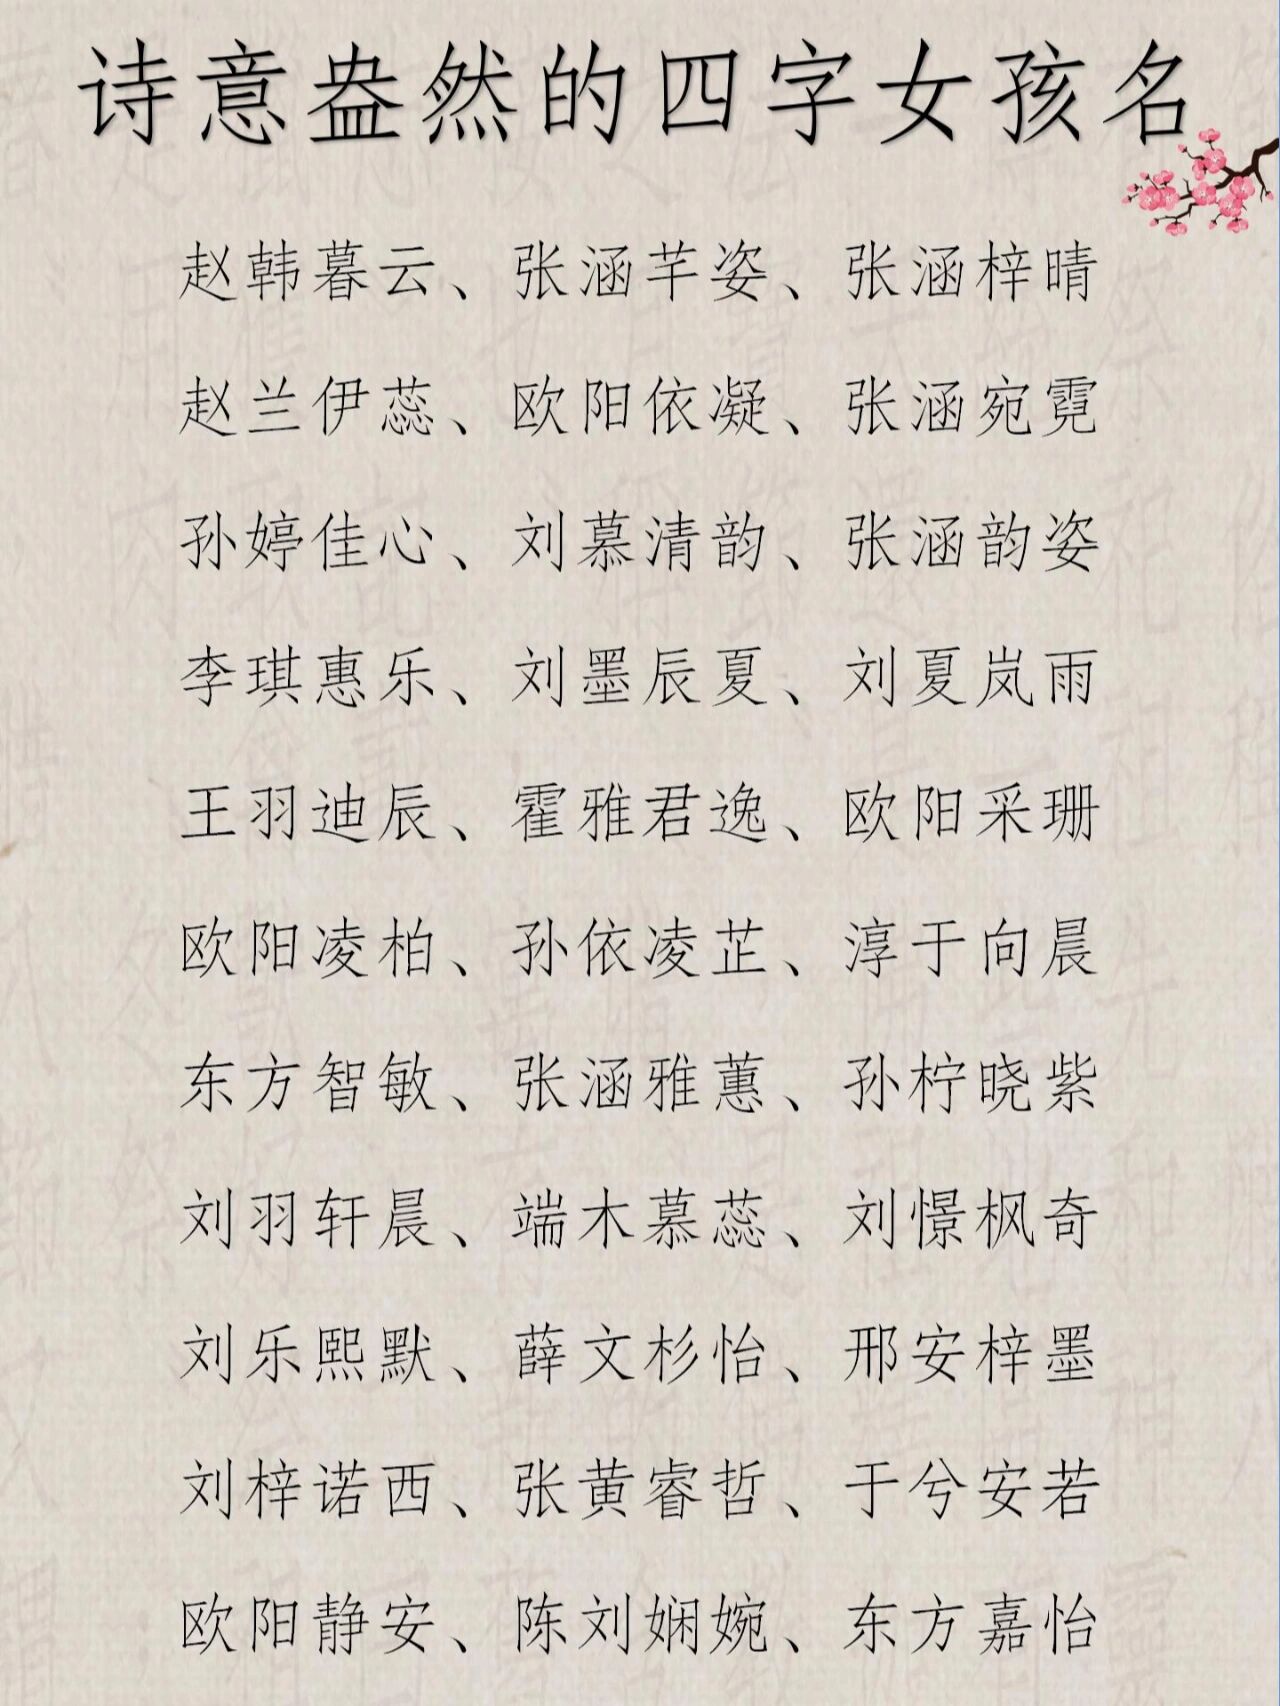 诗意盎然的四字女孩名
赵韩暮云、张涵芊姿、张涵梓晴
赵兰伊蕊、欧阳依凝、张涵宛霓
孙婷佳心、刘慕清韵、张涵韵姿
李琪惠乐、刘墨辰夏、刘夏岚雨
王羽迪辰、霍雅君逸、欧阳采珊
欧阳凌柏、孙依凌芷、淳于向晨
东方智敏、张涵雅蕙、孙柠晓紫
刘羽轩晨、端木慕蕊、刘憬枫奇
刘乐熙默、薛文杉怡、邢安梓墨
刘梓诺西、张黄睿哲、于兮安若
欧阳静安、陈刘娴婉、东方嘉怡